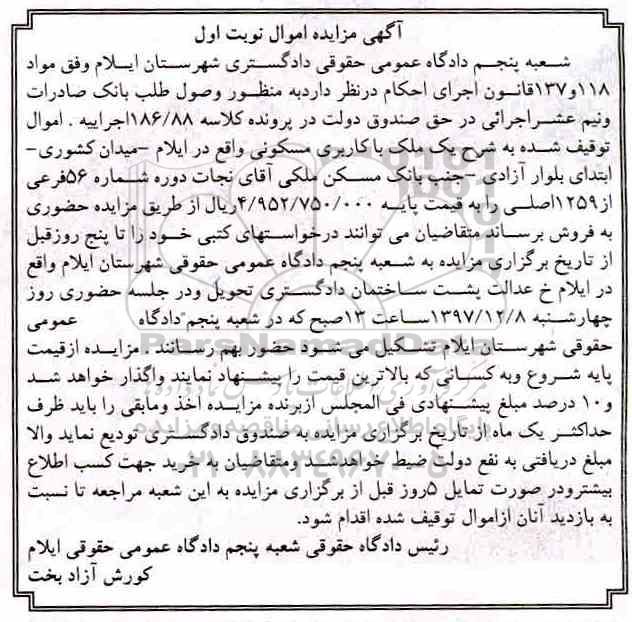 آگهی مزایده اموال نوبت اول
شعبه پنجم دادگاه عمومی حقوقی دادگستری شهرستان ایلام وفق مواد
۱۱۸و۱۳۷قانون اجرای احکام درنظر داردبه منظور وصول طلب بانک صادرات
ونیم عشراجرائی در حق صندوق دولت در پرونده کلاسه ۱۸۶/۸۸اجراییه . اموال
توقیف شده به شرح یک ملک باکاربری مسکونی واقع در ایلام –میدان کشوری–
ابتدای بلوار آزادی –جنب بانک مسکن ملکی آقای نجات دوره شماره ۵۶فرعی
از۱۲۵۹اصلی را به قیمت پایه ۴/۹۵۲/۷۵۰/۰۰۰ریال از طریق مزایده حضوری
به فروش برساند متقاضیان می توانند درخواستهای کتبی خود را تا پنج روزقبل
از تاریخ برگزاری مزایده به شعبه پنجم دادگاه عمومی حقوقی شهرستان ایلام واقع
در ایلام خ عدالت پشت ساختمان دادگستری تحویل ودر جلسه حضوری روز
چهارشنبه ۱۳۹۷/۱۲/۸ساعت ۱۳صبح که در شعبه پنجم دادگاه عمومی
حقوقی شهرستان ایلام تشکیل می شود حضور بهم رسانند . مزایده ازقیمت
پایه شروع وبه کسانی که بالاترین قیمت را پیشنهاد نمایند واگذار خواهد شد
و۱۰ درصد مبلغ پیشنهادی فی المجلس ازبرنده مزایده اخذ ومابقی را باید ظرف
حداکثر یک ماه از تاریخ برگزاری مزایده به صندوق دادگستری تودیع نماید والا
مبلغ دریافتی به نفع دولت ضبط خواهدشد . ومتقاضیان به خرید جهت کسب اطلاع
بیشترودر صورت تمایل ۵روز قبل از برگزاری مزایده به این شعبه مراجعه تا نسبت
به بازدید آنان ازاموال توقیف شده اقدام شود.
رئیس دادگاه حقوقی شعبه پنجم دادگاه عمومی حقوقی ایلام
کورش آزاد بخت
ParsNamadData
۰۲۱-۸۸۳۴۹۶۷۰-۵